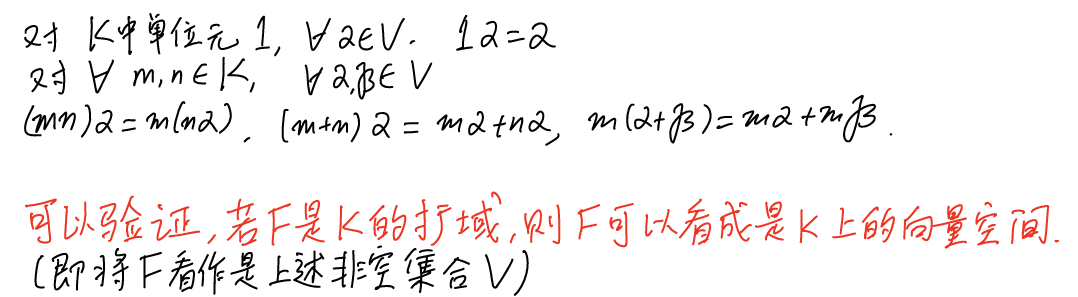 对 K中单位元 1, ∀α∈V. 1α=α
对 ∀ m,n∈K, ∀α,β∈V
(mn)α=m(nα), (m+n)α=mα+nα, m(α+β)=mα+mβ.
可以验证,若F是K的扩域,则F可以看成是K上的向量空间.
(即将F看作是上述非空集合V)